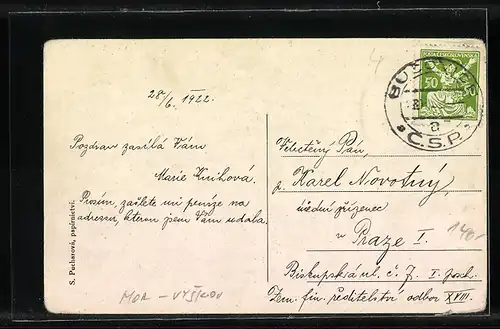 28/6. 1922.
Pozdrav zasílá Vám
Marie Knihová.
Prosím, zašlete mi peníze na
adresu, kterou jsem Vám udala.
S. Pucharová, papírnictví.
MOR - VYŠKOV
4
POŠTA ČESKOSLOVENSKÁ
50
a
Č.S.P.
Velectěný Pán,
p. Karel Novotný,
úřední zřízenec
v Praze I.
140,-
Biskupská ul. č. 7. I. posch.
Zem. fin. ředitelství odbor XVIII.